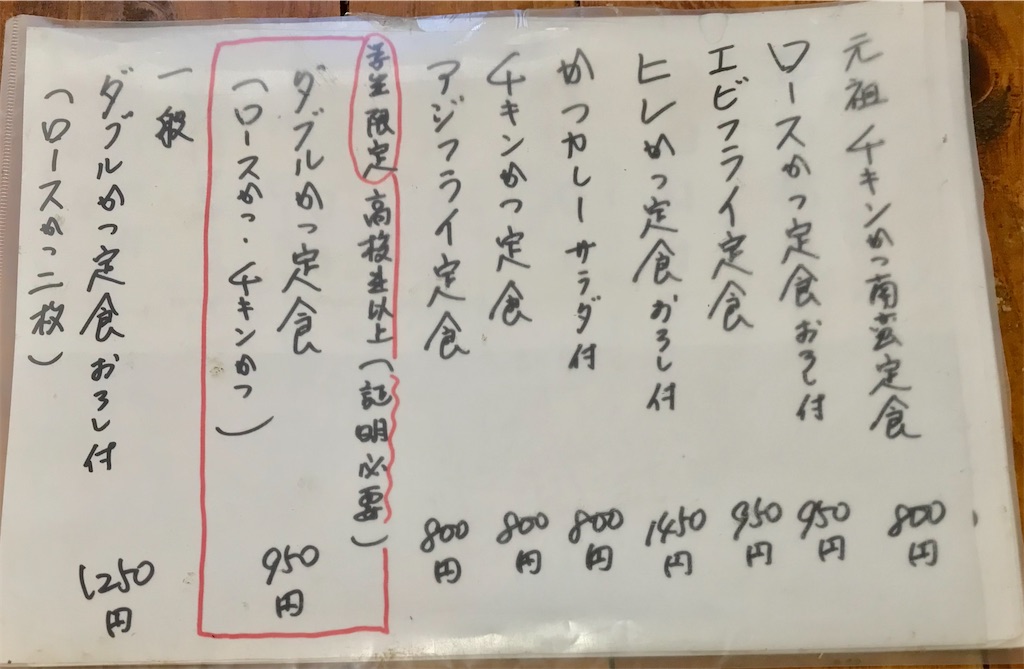 元祖チキンかつ南蛮定食 800円
ロースかつ定食おろし付 950円
エビフライ定食 950円
ヒレかつ定食おろし付 1450円
かつカレーサラダ付 800円
チキンかつ定食 800円
アジフライ定食 800円
学生限定 高校生以上(証明必要)
ダブルかつ定食 950円
(ロースかつ・チキンかつ)
一般
ダブルかつ定食おろし付 1250円
(ロースかつ二枚)